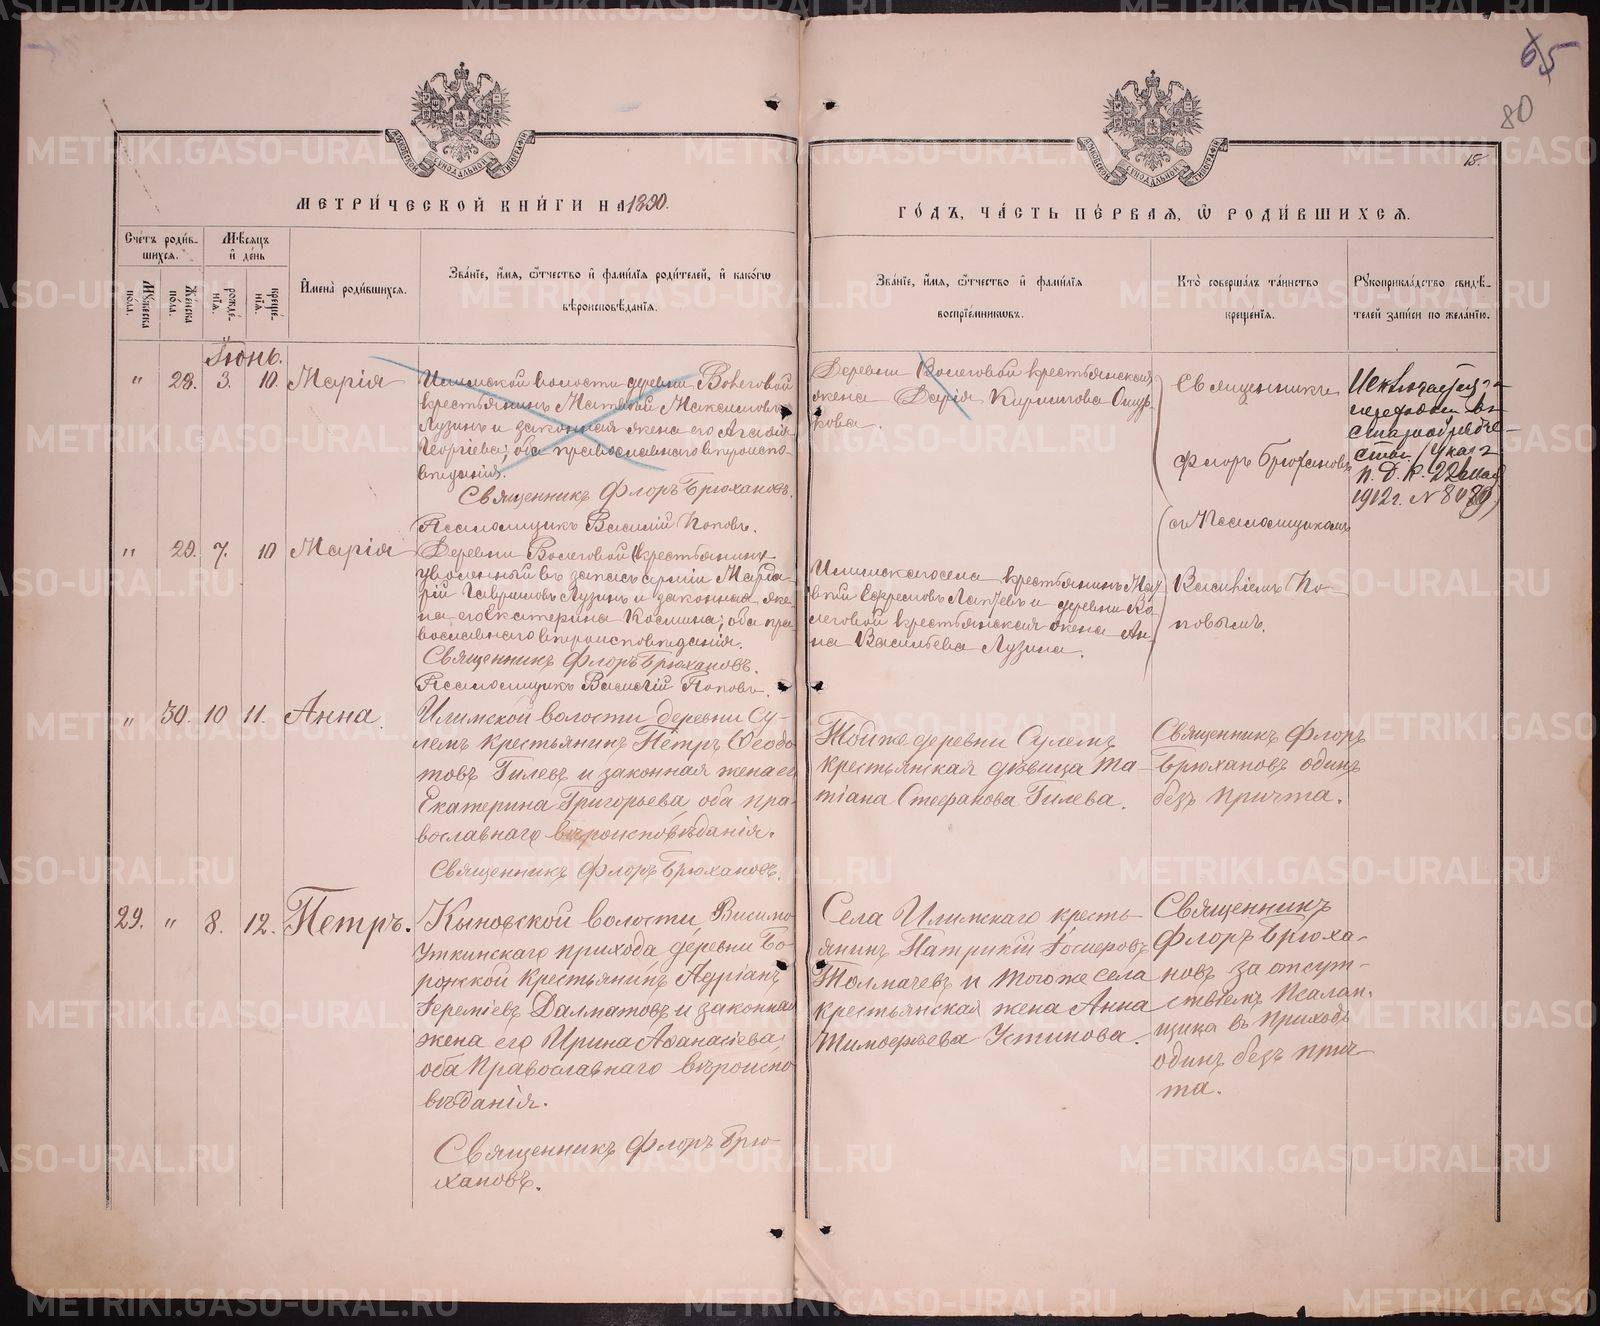 65
80
15.
МЕТРИ́ЧЕСКОЙ КНИ́ГИ НА 1890.
ГО́ДЪ, ЧА́СТЬ ПЕ́РВАЯ, Ѽ РОДИ́ВШИХСЯ.
Сче́тъ роди́в-
шихся.
Мѣ́сяцъ
и҆ де́нь
Мꙋ́жеска
пола.
Же́нска
пола.
рожде́-
нїя.
креще́-
нїя.
И҆мена̀ роди́вшихся.
Зва́нїе, и҆́мя, ѻ҆́тчество и҆ фами́лїя роди́телей, и҆ како́гѡ
вѣроисповѣ́данїя.
Зва́нїе, и҆́мя, ѻ҆́тчество и҆ фами́лїя
воспрїе́мниковъ.
Кто̀ соверша́лъ та́инство
креще́нїя.
Рꙋкоприкла́дство свидѣ́-
телей за́писи по жела́нїю.
Іюнь.
" 28. 3. 10. Марія
Илимской волости деревни Волеговой
крестьянинъ Матвей Максимовъ
Лузинъ и законная жена его Агафія
Георгіева; оба православнаго вѣроиспо-
вѣданія.
Священникъ Флоръ Брюхановъ.
Псаломщикъ Василій Поповъ.
Деревни Волеговой крестьянская
жена Дарія Кирилова
кова.
Священникъ
Флоръ Брюхановъ
съ Псаломщикомъ
Василіемъ По-
повымъ.
Исключается за
переходом въ
старообрядче-
ство. (Указ
П. Д. К. 22 мая
1912 г. № 8489)
" 29. 7. 10 Марія
Деревни Волеговой крестьянинъ
уволенный въ запасъ арміи
Гавриловъ Лузинъ и законная же-
на его Екатерина Космина; оба пра-
вославнаго вѣроисповѣданія.
Священникъ Флоръ Брюхановъ.
Псаломщикъ Василій Поповъ.
Илимскаго села крестьянинъ
Ефремовъ Лаптевъ и деревни Во-
леговой крестьянская жена Ан-
на Васильева Лузина.
" 30. 10 11. Анна
Илимской волости деревни Су-
лемъ крестьянинъ Петръ Ѳеодо-
товъ Гилевъ и законная жена ег
Екатерина Григорьева, оба пра-
вославнаго вѣроисповѣданія.
Священникъ Флоръ Брюхановъ.
Той же деревни Сулемъ
крестьянская дѣвица Та-
тіана Стефанова Гилева.
Священникъ Флоръ
Брюхановъ одинъ
безъ причта.
29. " 8. 12. Петръ.
Кыновской волости, Висимо-
Уткинскаго прихода деревни Бо-
ронской крестьянинъ Адріанъ
Іереміевъ Далматовъ и законная
жена его Ирина Аѳанасіева,
оба Православнаго вѣроиспо-
вѣданія.
Священникъ Флоръ Брю-
хановъ.
Села Илимскаго кресть-
янинъ Патрикій
Толмачевъ и того же села
крестьянская жена Анна
Тимоѳеева Устинова.
Священникъ
Флоръ Брюха-
новъ за отсут-
ствіемъ Псалом-
щика въ приходѣ
одинъ безъ прич-
та.
METRIKI.GASO-URAL.RU